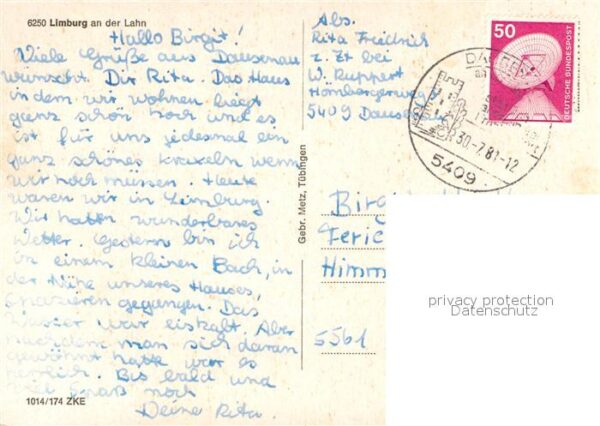 6250 Limburg an der Lahn
Hallo Birgit!
Viele Grüße aus Dausenau
wünscht Dir Rita. Das Haus
in dem wir wohnen liegt
ganz schön hoch und es
ist für uns jedesmal ein
ganz schönes kraxeln wenn
wir hoch müssen. Heute
waren wir in Limburg.
Wir hatten wunderbares
Wetter. Gestern bin ich
in einem kleinen Bach, in
der Nähe unseres Hauses,
spazieren gegangen. Das
Wasser war eiskalt. Aber
nachdem man sich daran
gewöhnt hatte war es
herrlich. Bis bald und
viel Spaß noch
Deine Rita.
1014/174 ZKE
Gebr. Metz, Tübingen
Abs.
Rita Friedrich
z. Zt bei
W. Ruppert
Hömbergerweg
5409 Dausenau
50
DEUTSCHE BUNDESPOST
30.-7.81-12
5409
Birgi
Ferie
Himm
5561
privacy protection
Datenschutz